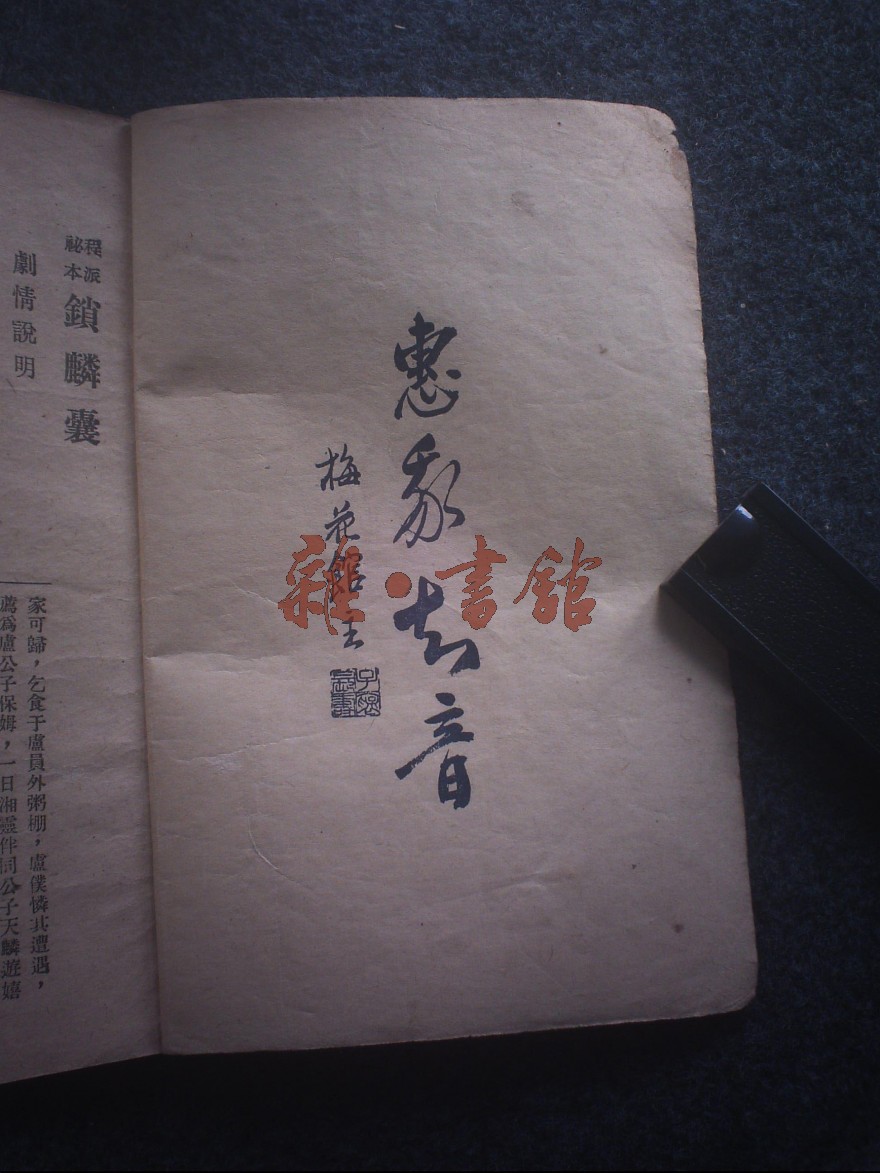 惠我知音
梅花館主
雜·書館
程派
秘本
鎖麟囊
劇情說明
家可歸，乞食于盧員外粥棚，盧僕憐其遭遇，
薦爲盧公子保姆，一日湘靈伴同公子天麟遊嬉